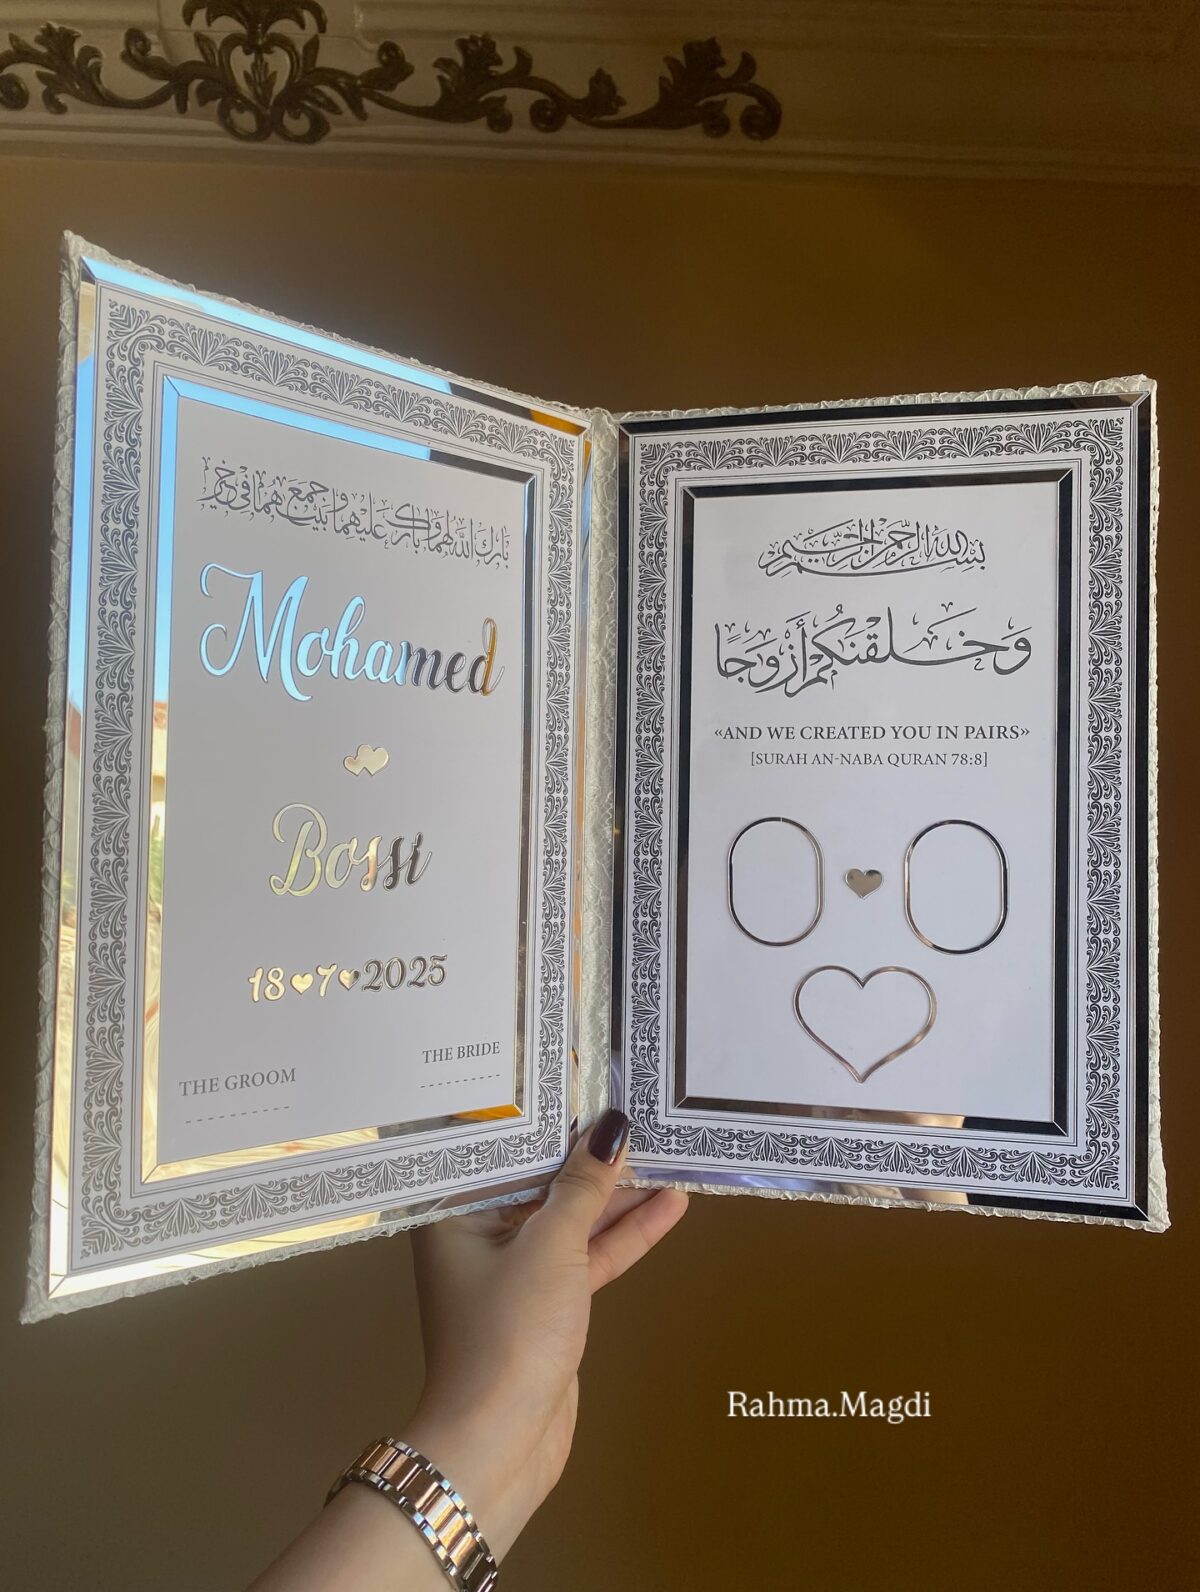 بارك الله لهما وبارك عليهما وجمع بينهما في خير
Mohamed
Bossi
18 7 2025
THE GROOM
THE BRIDE
بسم الله الرحمن الرحيم
وَخَلَقْنَٰكُمْ أَزْوَٰجًا
«AND WE CREATED YOU IN PAIRS»
[SURAH AN-NABA QURAN 78:8]
Rahma.Magdi